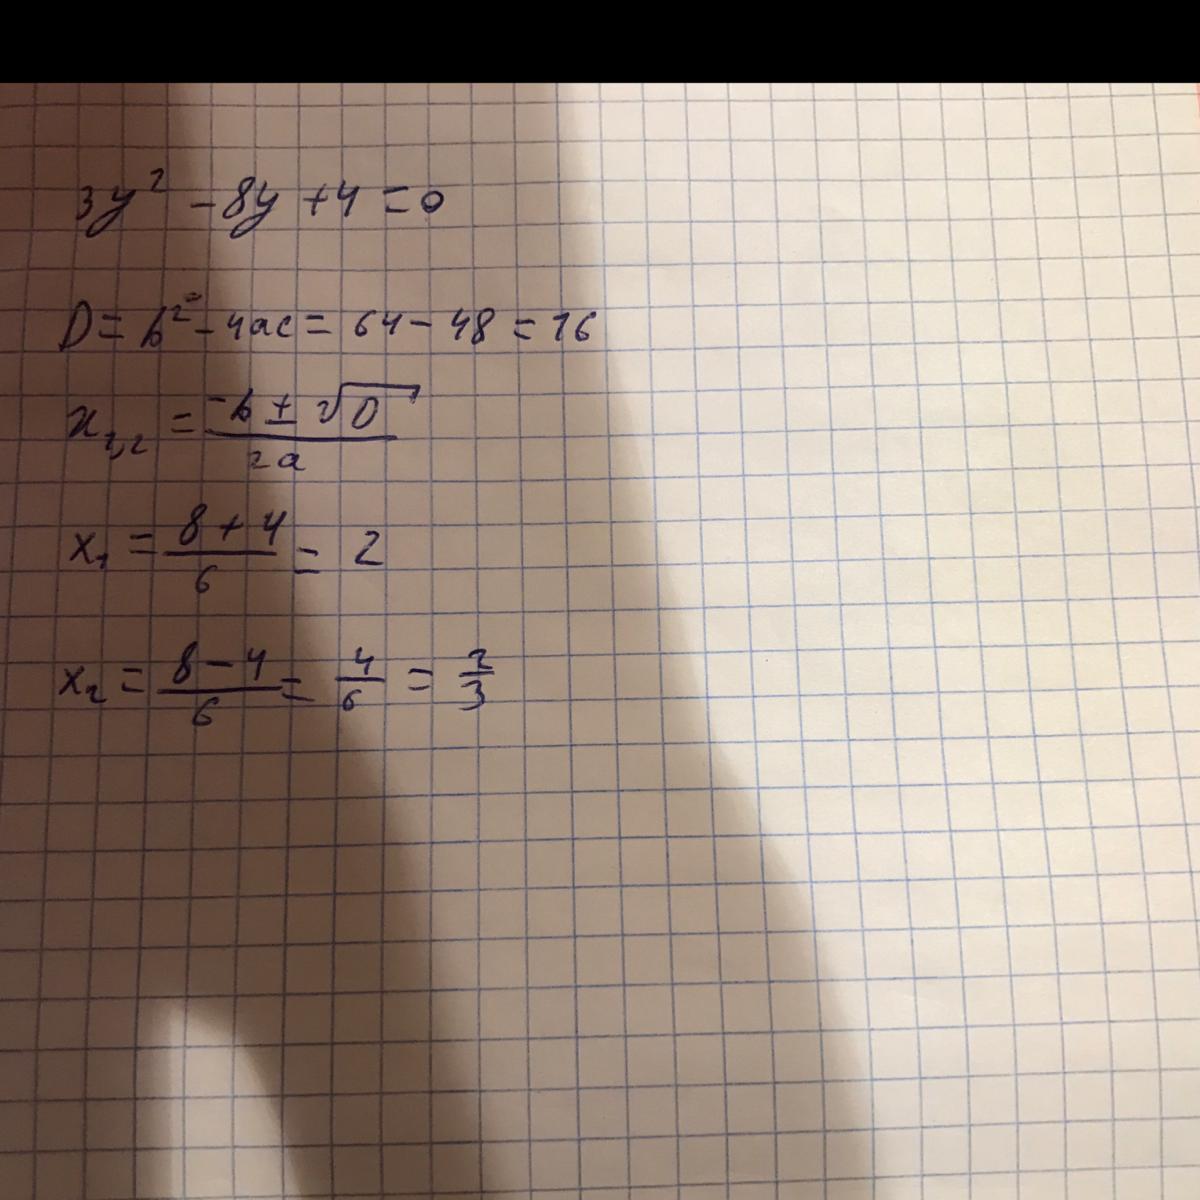 3y² - 8y + 4 = 0
D = b² - 4ac = 64 - 48 = 16
x₁,₂ = (-b ± √D) / 2a
x₁ = (8 + 4) / 6 = 2
x₂ = (8 - 4) / 6 = 4/6 = 2/3